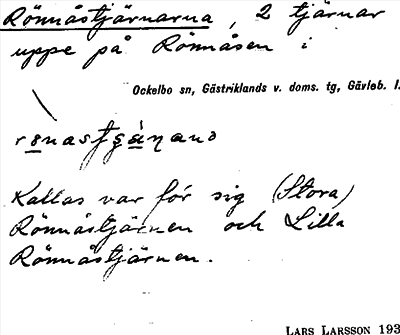 Rönnåstjärnarna, 2 tjärnar
uppe på Rönnåsen i
Ockelbo sn, Gästriklands v. doms. tg, Gävleb. l.
Kallas var för sig (Stora)
Rönnåstjärnen och Lilla
Rönnåstjärnen.
LARS LARSSON 193